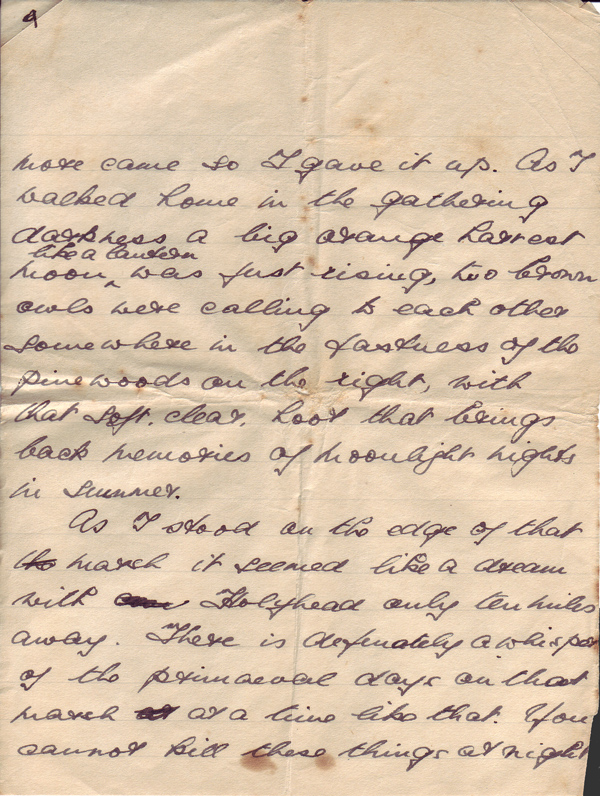 9
more came so I gave it up. As I
walked home in the gathering
darkness a big orange harvest
like a lantern
moon ^ was just rising, two brown
owls were calling to each other
somewhere in the fastness of the
pinewoods on the right, with
that soft, clear, hoot that brings
back memories of moonlight nights
in summer.
As I stood on the edge of that
marsh it seemed like a dream
with Holyhead only ten miles
away. There is definately a whisper
of the primaeval days on that
marsh at a time like that. You
cannot kill these things at night